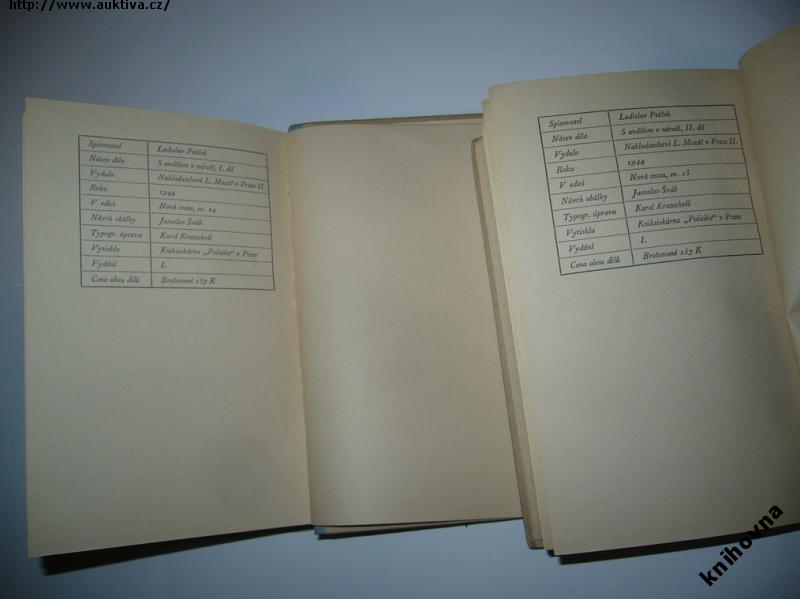 http://www.auktiva.cz/
Spisovatel Ladislav Ptáček
Název díla S andělem v náruči, I. díl
Vydalo Nakladatelství L. Mazáč v Praze II.
Roku 1944
V edici Nová cesta, sv. 14
Návrh obálky Jaroslav Šváb
Typogr. úprava Karel Kratochvíl
Vytiskla Knihtiskárna „Politika“ v Praze
Vydání I.
Cena obou dílů Brožovaně 157 K
Spisovatel Ladislav Ptáček
Název díla S andělem v náruči, II. díl
Vydalo Nakladatelství L. Mazáč v Praze II.
Roku 1944
V edici Nová cesta, sv. 15
Návrh obálky Jaroslav Šváb
Typogr. úprava Karel Kratochvíl
Vytiskla Knihtiskárna „Politika“ v Praze
Vydání I.
Cena obou dílů Brožovaně 157 K
knihovna